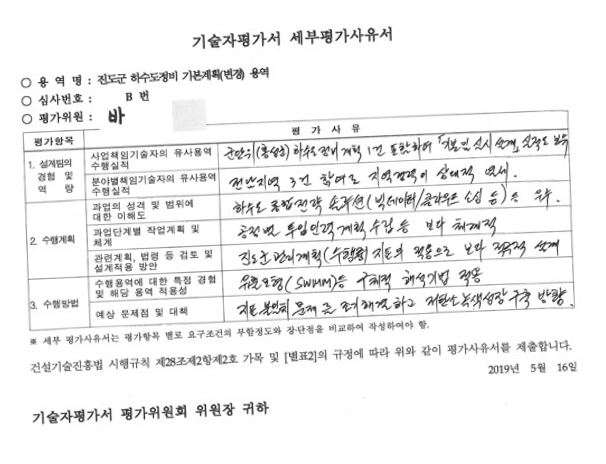 기술자평가서 세부평가사유서
○ 용 역 명 : 진도군 하수도정비 기본계획(변경) 용역
○ 심사번호 : B 번
○ 평가위원 : 바
평가항목 평 가 사 유
1. 설계팀의 경험 및 역 량
사업책임기술자의 유사용역 수행실적 군단위(홍성군) 하수도정비계획 1건 포함하여 「기본 및 실시설계」 실적도 보유
분야별책임기술자의 유사용역 수행실적 전남지역 3건 참여로 지역경력이 상대적 열세.
2. 수행계획
과업의 성격 및 범위에 대한 이해도 하수도 통합전략 솔루션(빅데이터/클라우드 소싱 등)은 우수
과업단계별 작업계획 및 체계 공정별 투입인력계획 수립 등 보다 체계적
관련계획, 법령 등 검토 및 설계적용 방안 진도군 관리계획 지도의 적용으로 보다 적극적 설계
3. 수행방법
수행용역에 대한 특정 경험 및 해당 용역 적용성 유출모형(SWMM)등 구체적 해석기법 적용
예상 문제점 및 대책 지도 불일치 문제 조기해결하고 저탄소녹색성장 구축 방향.
※ 세부 평가사유서는 평가항목 별로 요구조건의 부합정도와 장단점을 비교하여 작성하여야 함.
건설기술진흥법 시행규칙 제28조제2항제2호 가목 및 [별표2]의 규정에 따라 위와 같이 평가사유서를 제출합니다.
2019년 5월 16일
기술자평가서 평가위원회 위원장 귀하